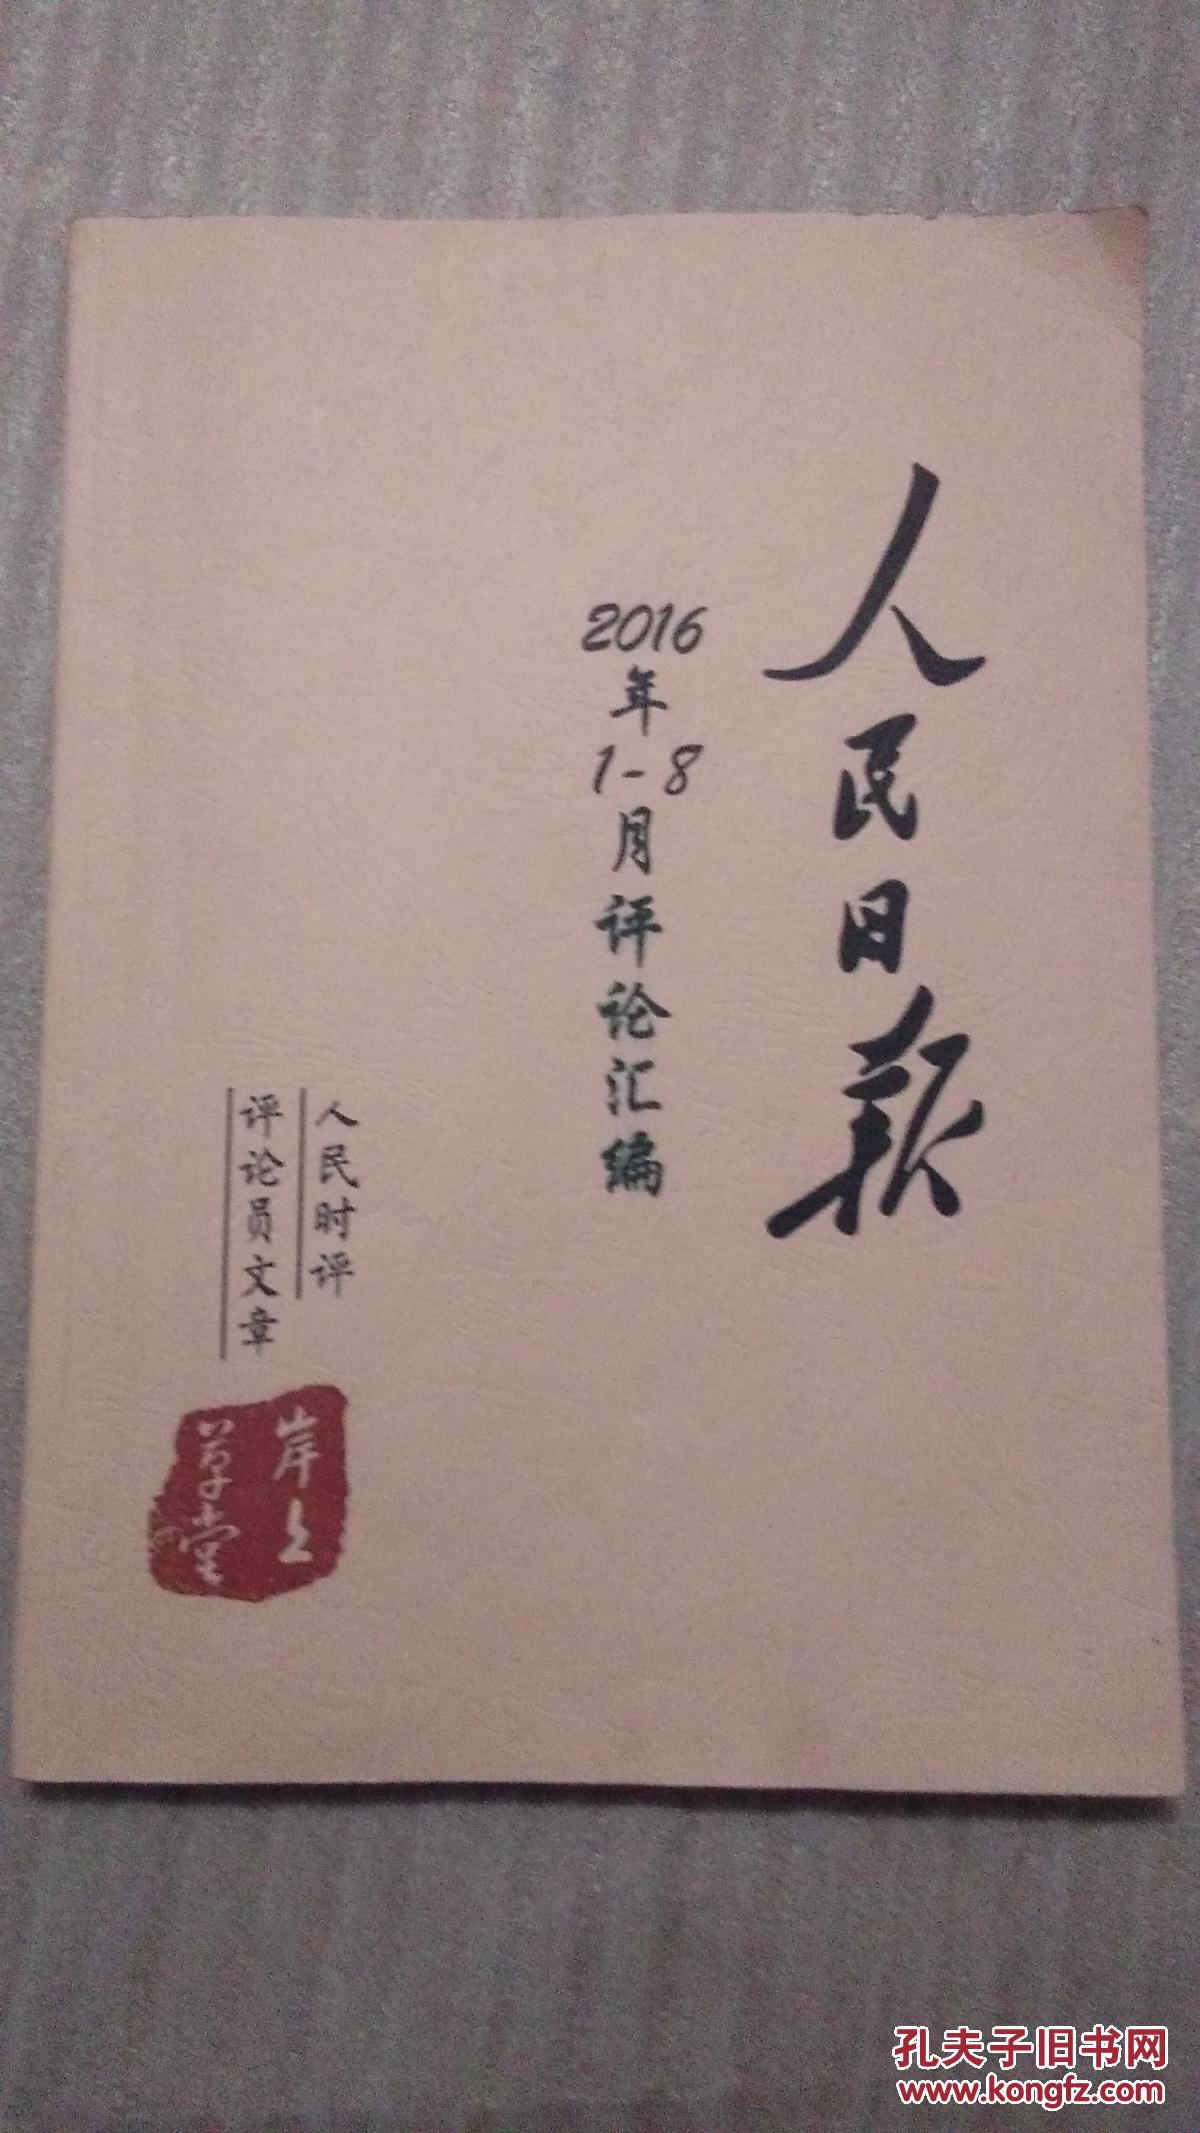 人民日报
2016年1-8月评论汇编
人民时评
评论员文章
岸上
草堂
孔夫子旧书网
www.kongfz.com